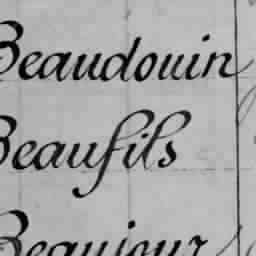 Beaudouin
Beaufils
Beaujour